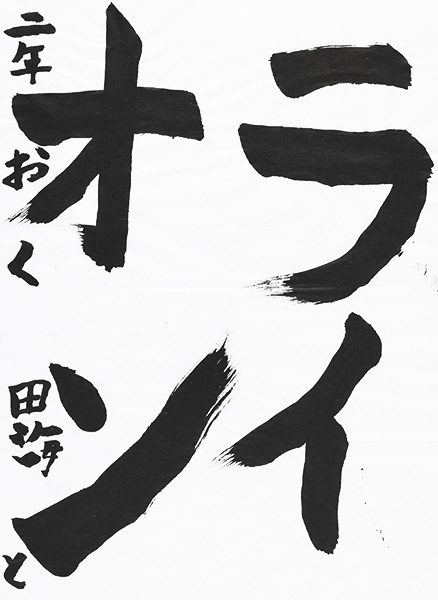 ライ
オン
二年 おく田海と